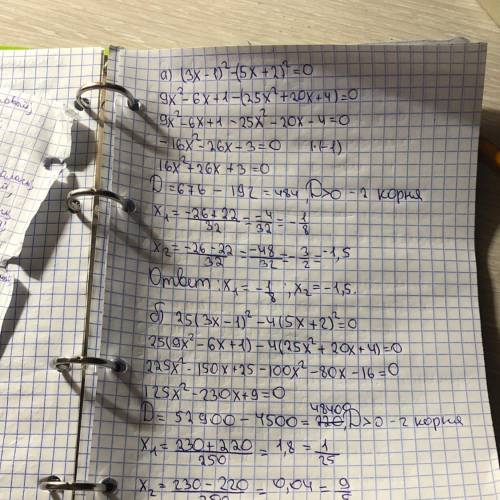 а) (3x-1)²-(5x+2)²=0
9x²-6x+1-(25x²+20x+4)=0
9x²-6x+1-25x²-20x-4=0
-16x²-26x-3=0 |·(-1)
16x²+26x+3=0
D=676-192=484, D>0 - 2 корня
x₁=(-26+22)/32=-4/32=-1/8
x₂=(-26-22)/32=-48/32=-3/2=-1,5
Ответ: x₁=-1/8; x₂=-1,5.
б) 25(3x-1)²-4(5x+2)²=0
25(9x²-6x+1)-4(25x²+20x+4)=0
225x²-150x+25-100x²-80x-16=0
125x²-230x+9=0
D=52900-4500=48400, D>0 - 2 корня
x₁=(230+220)/250=1,8=1/25
x₂=(230-220)/250=0,04=9/5